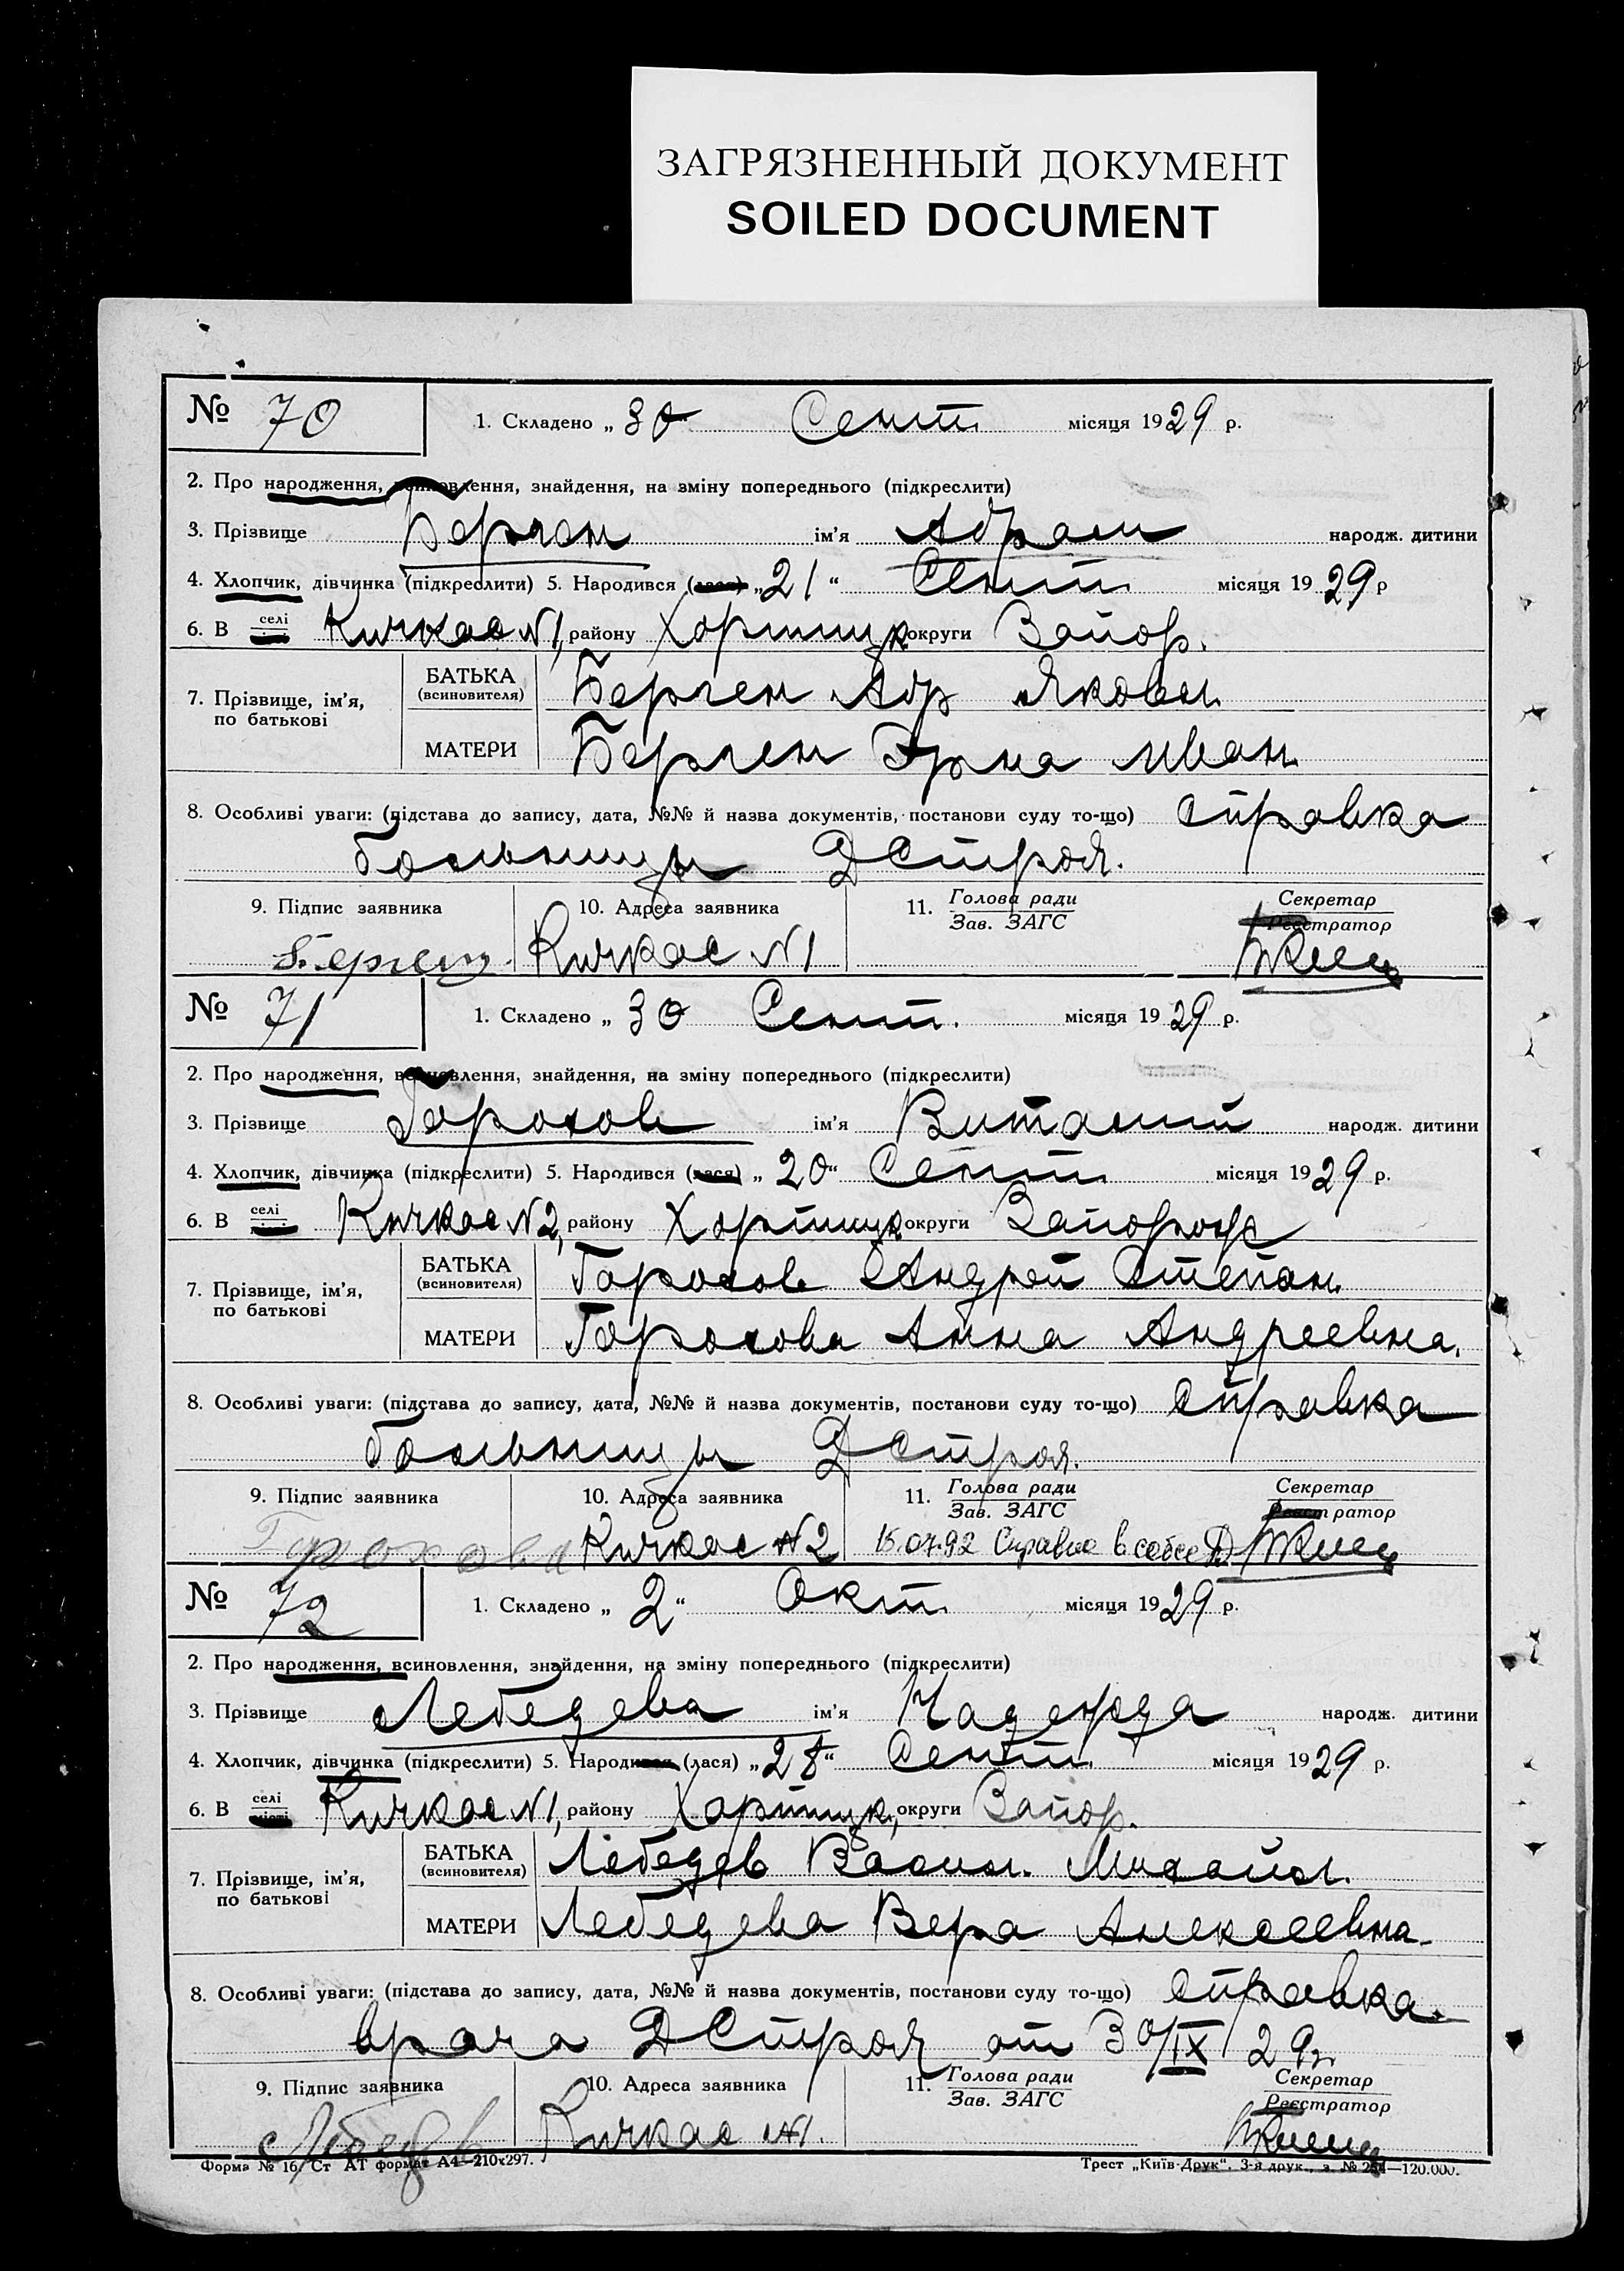 ЗАГРЯЗНЕННЫЙ ДОКУМЕНТ
SOILED DOCUMENT
№ 70 1. Складено „ 30 Сент. місяця 1929 р.
2. Про народження, всиновлення, знайдення, на зміну попереднього (підкреслити)
3. Прізвище Берген ім'я Абрам народж. дитини
4. Хлопчик, дівчинка (підкреслити) 5. Народився (лася) „21“ Сент. місяця 1929 р
6. В селі Кичкас N1, району Хортицк. округи Запор.
7. Прізвище, ім'я, по батькові БАТЬКА (всиновителя) Берген Абр Яковл.
МАТЕРИ Берген Эрна Иван.
8. Особливі уваги: (підстава до запису, дата, №№ й назва документів, постанови суду то-що) Справка
больницы ДСтроя.
9. Підпис заявника 10. Адреса заявника 11. Голова ради Зав. ЗАГС Секретар Реєстратор
Берген Кичкас N1
№ 71 1. Складено „ 30 Сент. місяця 1929 р.
2. Про народження, всиновлення, знайдення, на зміну попереднього (підкреслити)
3. Прізвище Горохов ім'я Виталий народж. дитини
4. Хлопчик, дівчинка (підкреслити) 5. Народився (лася) „ 20“ Сент. місяця 1929 р.
6. В селі Кичкас N2, району Хортицк округи Запорож
7. Прізвище, ім'я, по батькові БАТЬКА (всиновителя) Горохов Андрей Степан.
МАТЕРИ Горохова Анна Андреевна.
8. Особливі уваги: (підстава до запису, дата, №№ й назва документів, постанови суду то-що) Справка
больницы ДСтроя.
9. Підпис заявника 10. Адреса заявника 11. Голова ради Зав. ЗАГС Секретар Реєстратор
Горохова Кичкас N2 15.07.92 Справка в
№ 72 1. Складено „ 2“ Окт. місяця 1929 р.
2. Про народження, всиновлення, знайдення, на зміну попереднього (підкреслити)
3. Прізвище Лебедева ім'я Надежда народж. дитини
4. Хлопчик, дівчинка (підкреслити) 5. Народився (лася) „28“ Сент. місяця 1929 р.
6. В селі Кичкас N1, району Хортицк, округи Запор.
7. Прізвище, ім'я, по батькові БАТЬКА (всиновителя) Лебедев Васил. Михайл.
МАТЕРИ Лебедева Вера Алексеевна.
8. Особливі уваги: (підстава до запису, дата, №№ й назва документів, постанови суду то-що) Справка
врача ДСтроя от 30/IX 29г.
9. Підпис заявника 10. Адреса заявника 11. Голова ради Зав. ЗАГС Секретар Реєстратор
Лебедев Кичкас N1.
Форма № 16. Ст АТ формат А4—210х297. Трест „Київ-Друк“. 3-я друк., з. № 254—120.000.